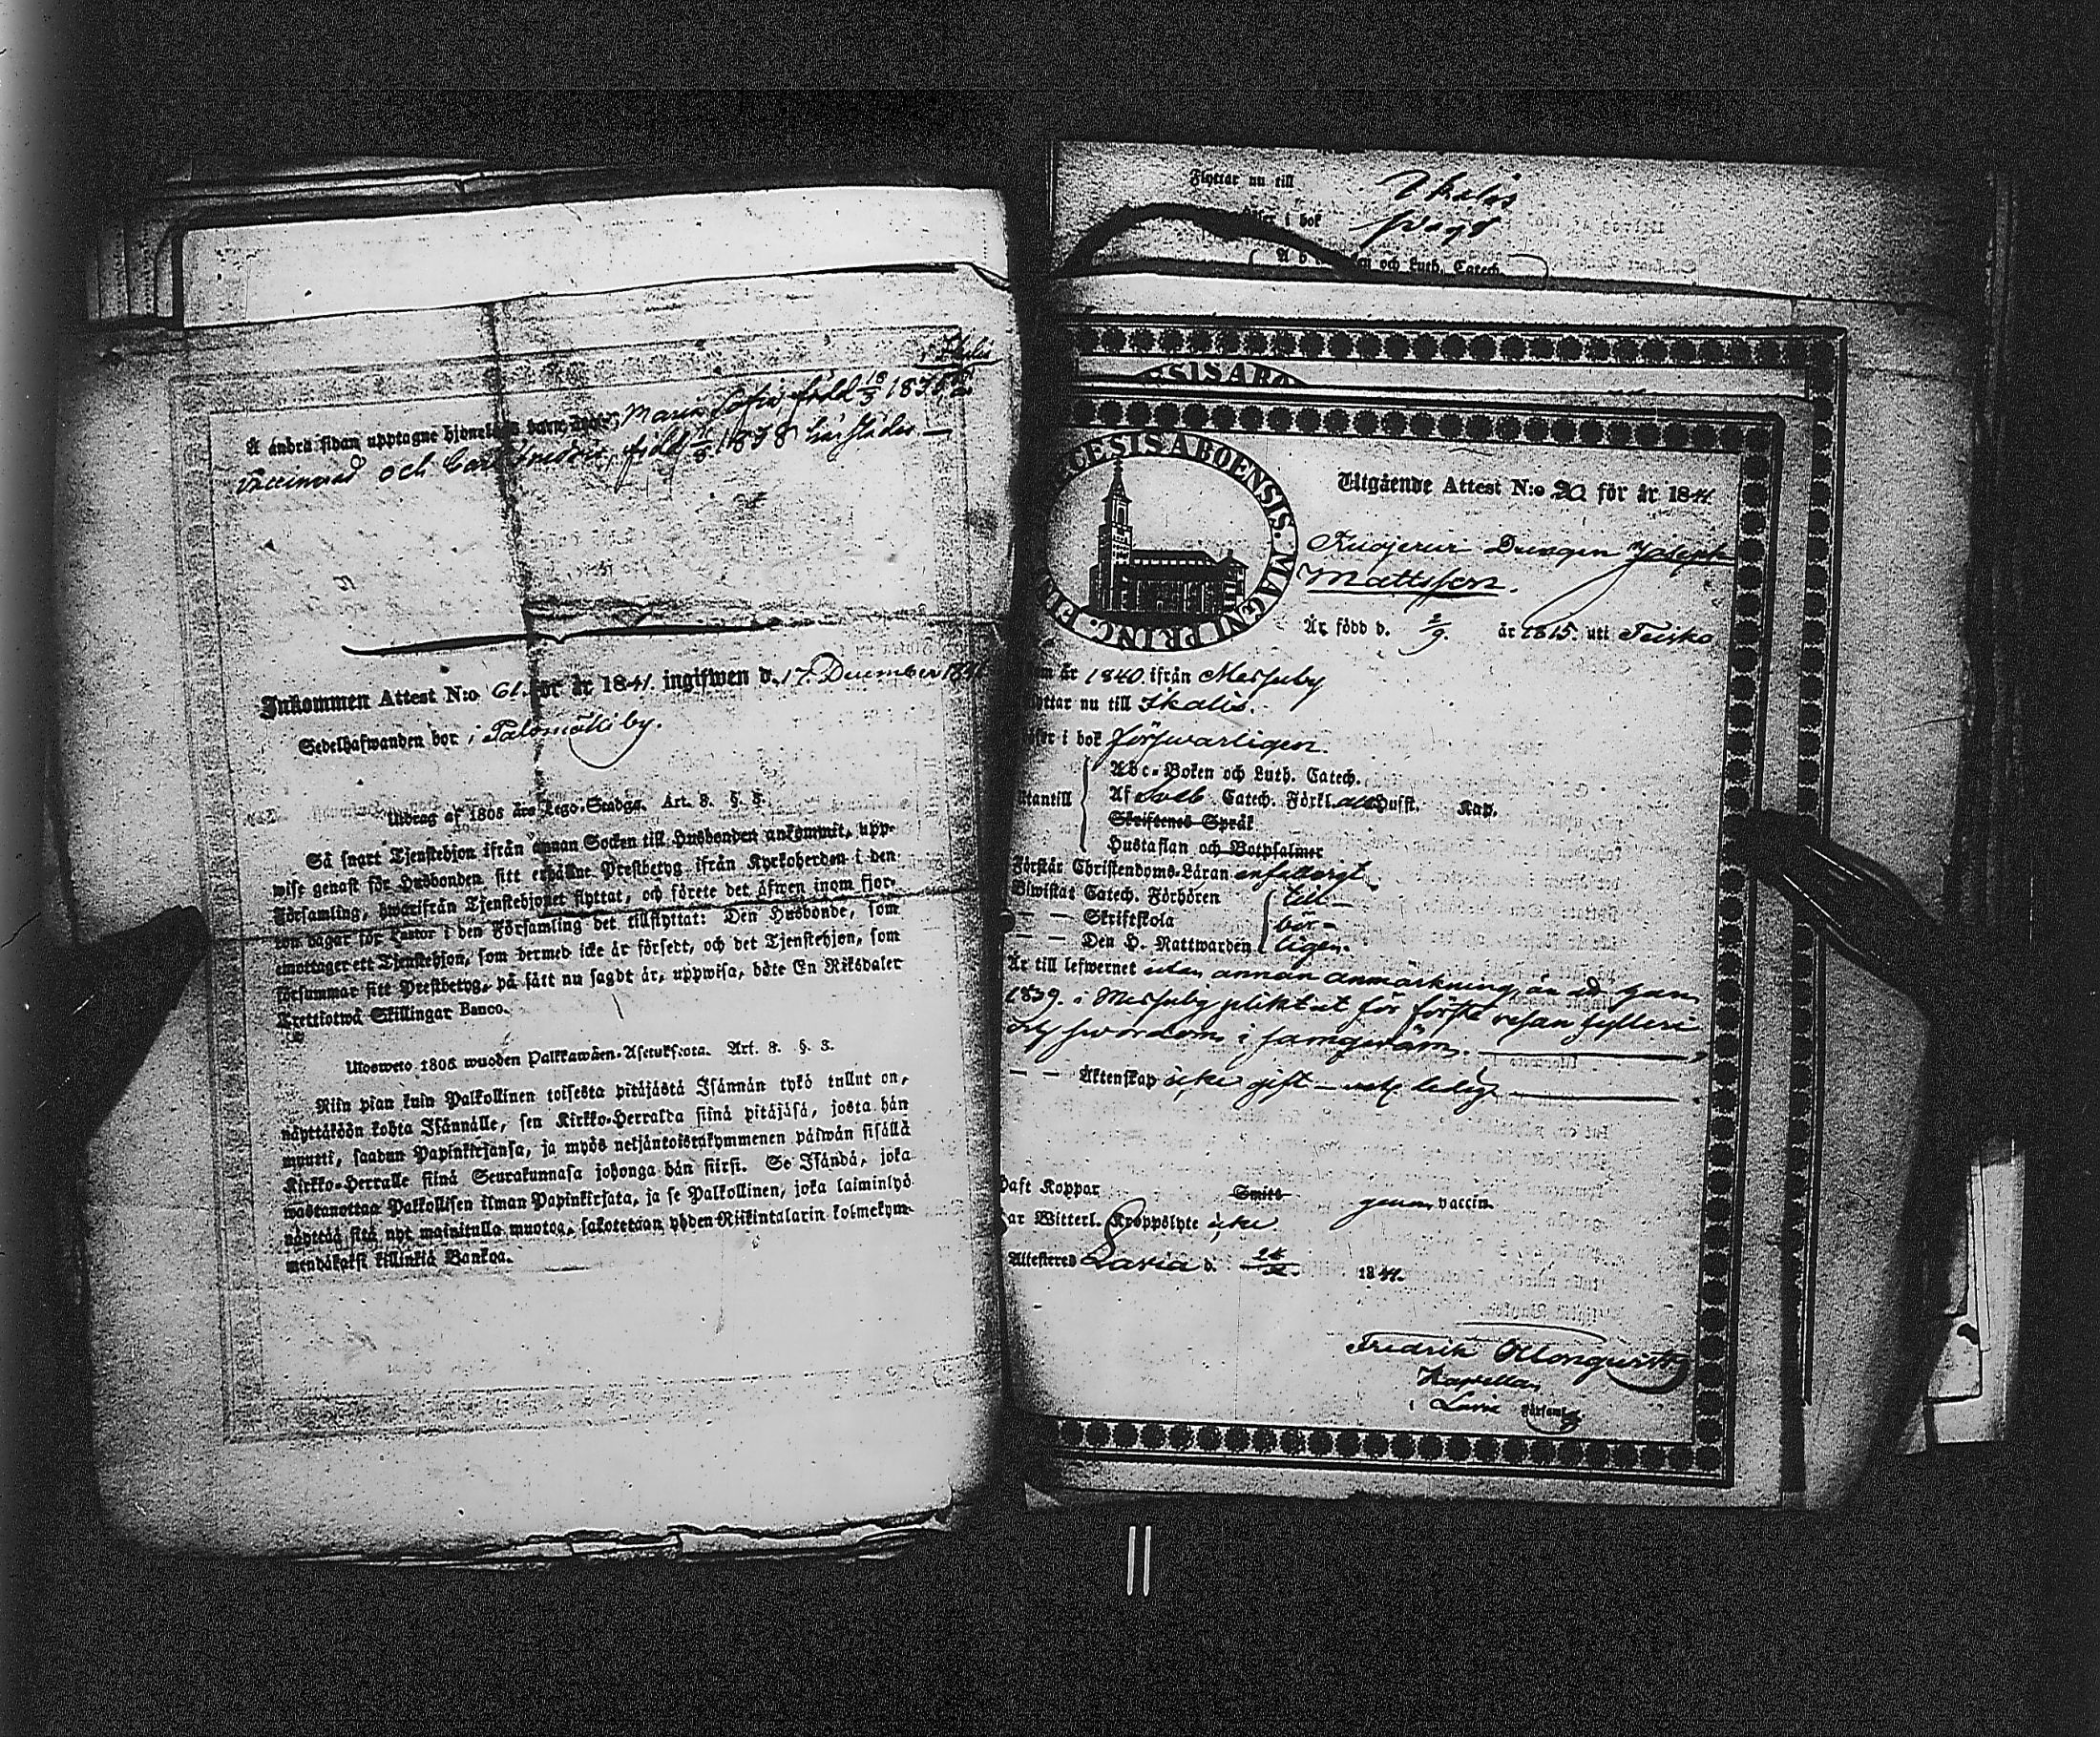 Ikalis
Å andra sidan upptagne hjonelags barn, äro: Maria Sofia, född 10/3 1835, är
Vaccinerad och Carl, född 1838 här födes —
Inkommen Attest N:o 61. för år 1841. ingifwen d. 17 December 1841
Sedelhafwanden bor i Palomäki by.
Utdrag af 1805 års Lego-Stadga. Art. 8. §. 8.
Så snart Tjenstehjon ifrån annan Socken till Husbonden ankommit, upp-
wise genast för Husbonden sitt erhållne Prestbetyg ifrån Kyrkoherden i den
Församling, hwarifrån Tjenstehjonet flyttat, och förete det äfwen inom fjor-
ton dagar för Pastor i den Församling det tillflyttat: Den Husbonde, som
emottager ett Tjenstehjon, som dermed icke är försedt, och det Tjenstehjon, som
försummar sitt Prestbetyg, på sätt nu sagdt är, uppwisa, böte En Riksdaler
Trettiotwå Skillingar Banco.
Ulosweto 1805 wuoden Palkkawäen-Asetuksesta. Art. 8. §. 8.
Niin pian kuin Palkollinen toisesta pitäjästä Isännän tykö tullut on,
näyttäköön kohta Isännälle, sen Kirkko-Herralda siinä pitäjäsä, josta hän
muutti, saadun Papinkirjansa, ja myös neljäntoistakymmenen päiwän sisällä
Kirkko-Herralle siinä Seurakunnasa johonga hän siirsi. Se Isändä, joka
wastanottaa Palkollisen ilman Papinkirjata, ja se Palkollinen, joka laiminlyö
näyttää sitä nyt mainitulla muotoa, sakotetaan yhden Riikintalarin kolmekym-
mendäkaksi killinkiä Bankoa.
Flyttar nu till Ikalis
i bok swagt
och Luth. Catech.
SISABO
CESIS ABOENSIS. MAGNI PRINC. FIN
Utgående Attest N:o 20 för år 1841.
Drengen Joseph
Mattsson.
Är född d. 2/9. år 1815. uti Teisko
år 1840. ifrån Messuby
ttar nu till Ikalis.
i bok förswarligen.
Abc-Boken och Luth. Catech.
tantill Af Sveb. Catech. Förkl. Hufst. Kap.
Skriftenes Språk
Hustaflan och Botpsalmer
Förstår Christendoms-Läran enfaldigt.
Biwistat Catech. Förhören till-
— — Skriftskola bör-
— — Den H. Nattwarden ligen.
Är till lefwernet utan annan anmärkning, än att han
1839. i Messuby pliktat för första resan fylleri
och swordom i samqwäm.
— — Äktenskap icke gift — ledig
Haft Koppor Smitt genom vaccin.
ar Witterl. Kroppslyte icke
Attesteras Lavia d. 1841.
Fredrik Blomqwist
Kapellan
i Lavia Församl.